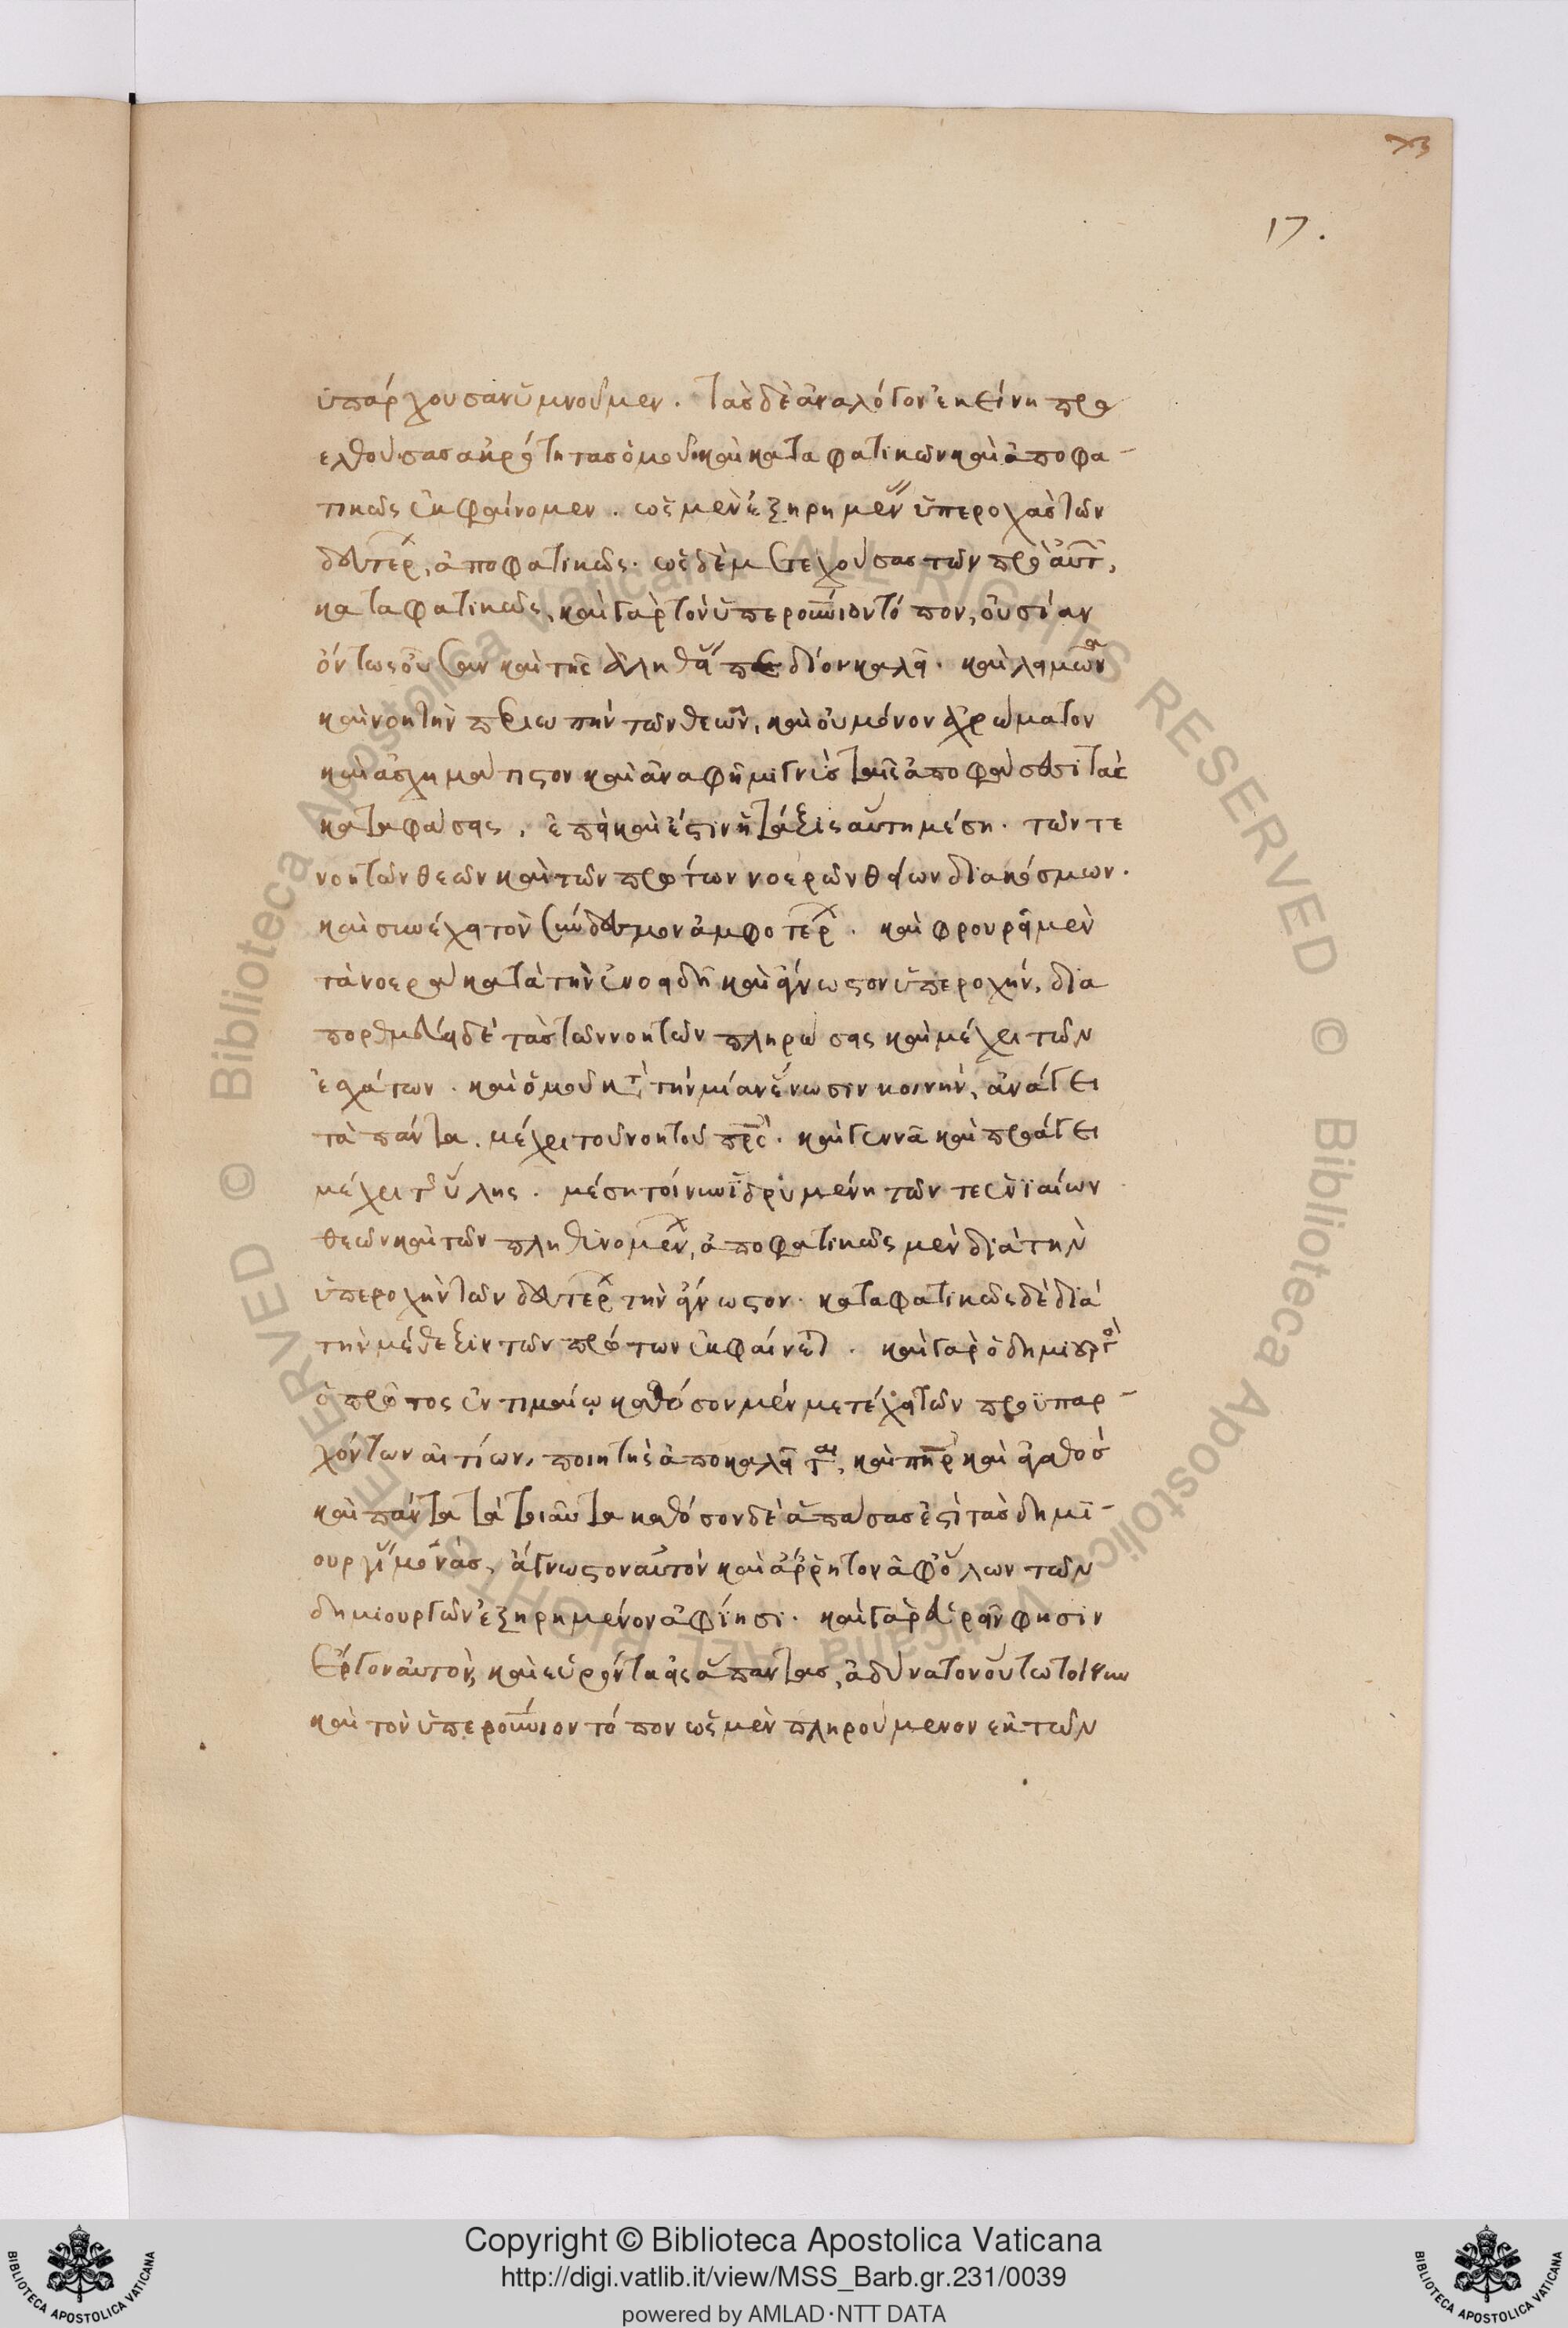 73
17.
ὑπάρχουσαν ὑμνοῦμεν. τὰς δὲ ἀνάλογον ἐκείνη προ
ελθούσας ἀκρότητας ὁμοῦ καὶ καταφατικῶν καὶ ἀποφα-
τικῶς ἐκφαίνομεν. ὡς μὲν ἐξῃρημέν ὑπεροχὰς τῶν
δευτέρ, ἀποφατικῶς. ὡς δὲ μετεχούσας τῶν πρὸ αὐτ,
καταφατικῶς, καὶ γὰρ τὸν ὑπερουράνιον τόπον, οὐσίαν
ὄντως οὖσαν καὶ τῆς ἀληθεί πεδίον καλεῖ. καὶ λειμῶνα
καὶ νοητὴν περιωπὴν τῶν θεῶν, καὶ οὐ μόνον ἀχρώματον
καὶ ἀσχημάτιστον καὶ ἀναφῆ μιγνὺς ταῖς ἀποφάσεσι τὰς
καταφάσεις, ἐπεὶ καὶ ἔστιν ἡ τάξις αὕτη μέση. τῶν τε
νοητῶν θεῶν καὶ τῶν πρώτων νοερῶν θείων διακόσμων.
καὶ συνέχει τὸν σύνδεσμον ἀμφοτέρ. καὶ φρουρεῖ μὲν
τὰ νοερὰ κατὰ τὴν ἑνοειδῆ καὶ ἄγνωστον ὑπεροχήν, δια
πορθμεύει δὲ τὰς τῶν νοητῶν πληρώσεις καὶ μέχρι τῶν
ἐσχάτων. καὶ ὁμοῦ κατὰ τὴν μίαν ἕνωσιν κοινήν, ἀνάγει
τὰ πάντα. μέχρι τοῦ νοητοῦ πρς. καὶ γεννᾷ καὶ προάγει
μέχρι τ ὕλης. μέση τοίνυν ἱδρυμένη τῶν τε ἑνιαίων
θεῶν καὶ τῶν πληθυνομέν, ἀποφατικῶς μὲν διὰ τὴν
ὑπεροχὴν τῶν δευτέρ τὴν ἄγνωστον. καταφατικῶς δὲ διὰ
τὴν μέθεξιν τῶν πρώτων ἐκφαίνεται. καὶ γὰρ ὁ δημιουργὸς
ὁ πρῶτος ἐν τιμαίῳ καθόσον μὲν μετέχει τῶν προϋπαρ-
χόντων αἰτίων, ποιητὴς ἀποκαλεῖται, καὶ πηρ καὶ ἀγαθὸς
καὶ πάντα τὰ τοιαῦτα καθόσον δὲ ἁπάσας ἐστὶ τὰς δημι-
ουργι μονάς, ἄγνωστον αὐτὸν καὶ ἄρρητον ἀφ' ὅλων τῶν
δημιουργῶν ἐξῃρημένον ἀφίησι. καὶ γὰρ εὑρεῖν φησιν
ἔργον αὐτόν, καὶ εὑρόντα εἰς ἅπαντας, ἀδύνατον οὕτω τοίνυν
καὶ τὸν ὑπερουράνιον τόπον ὡς μὲν πληρούμενον ἐκ τῶν
Copyright © Biblioteca Apostolica Vaticana
http://digi.vatlib.it/view/MSS_Barb.gr.231/0039
powered by AMLAD·NTT DATA
© Biblioteca Apostolica Vaticana ALL RIGHTS RESERVED
© Biblioteca Apostolica Vaticana ALL RIGHTS RESERVED
BIBLIOTECA APOSTOLICA VATICANA
BIBLIOTECA APOSTOLICA VATICANA